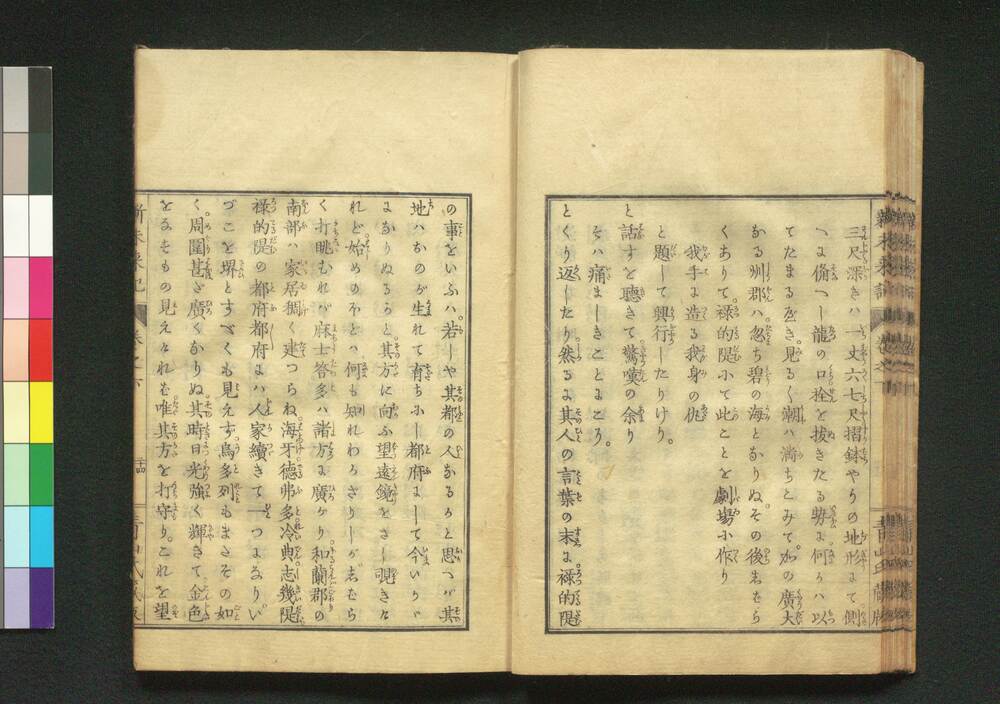 三尺深きハ一丈六七尺摺鉢やうの地形にて側
へに備へし龍の口拴を抜きたる勢に何かハ以
てたまるべき。見る〱潮ハ満ちこみて。加の廣大
なる刕郡ハ。忽ち碧の海となりぬ。その後
くありて。禄的隄にて此ことを劇場に作り
我手に造る我身の仇
と題して興行したりけり。
と話すを聴きて驚嘆の余り
そハ痛ましきことにこそ。
とくり返したり。然るに其人の言葉の末に禄的隄
の事をいふハ。若しや其都の人なるかと思へバ其
地ハおのが生れて育ちにし都府にして今いりに
よなりぬるらと。其方に向ふ望遠鏡をさし覗きな
れど。始めのほどハ何も知れわかざりしが
く打眺むれバ。麻士答多ハ諸方に廣がり。和蘭郡の
南部ハ家居稠く建つらね。海牙德弗多冷典志幾隄
禄的隄の都府都府にハ人家續きて一つになりい
づこを堺とすべくも見えず。烏多列もまさその如
く。周圍甚ざ廣くなりぬ。其時日光強く輝きて金色
なるものの見えたれバ唯其方を打守り。これを望
新未来記